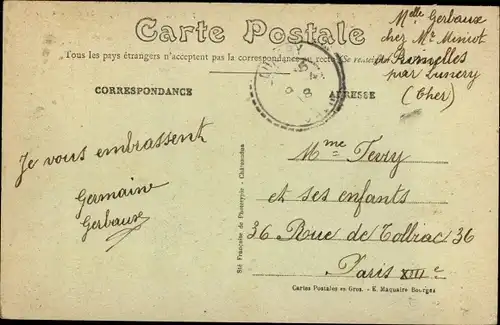 Carte Postale
Tous les pays étrangers n'acceptent pas la correspondance au recto (Se renseigner
CORRESPONDANCE
ADRESSE
Melle Gerbaux
chez Mr Miniot
par Lunery
(Cher)
Je vous embrassent
Germaine
Gerbaux
Mme Fevry
et ses enfants
36 Rue de Tolbiac 36
Paris XIIIe
Sté Française de Phototypie - Châteaudun
Cartes Postales en Gros. - E. Maquaire Bourges